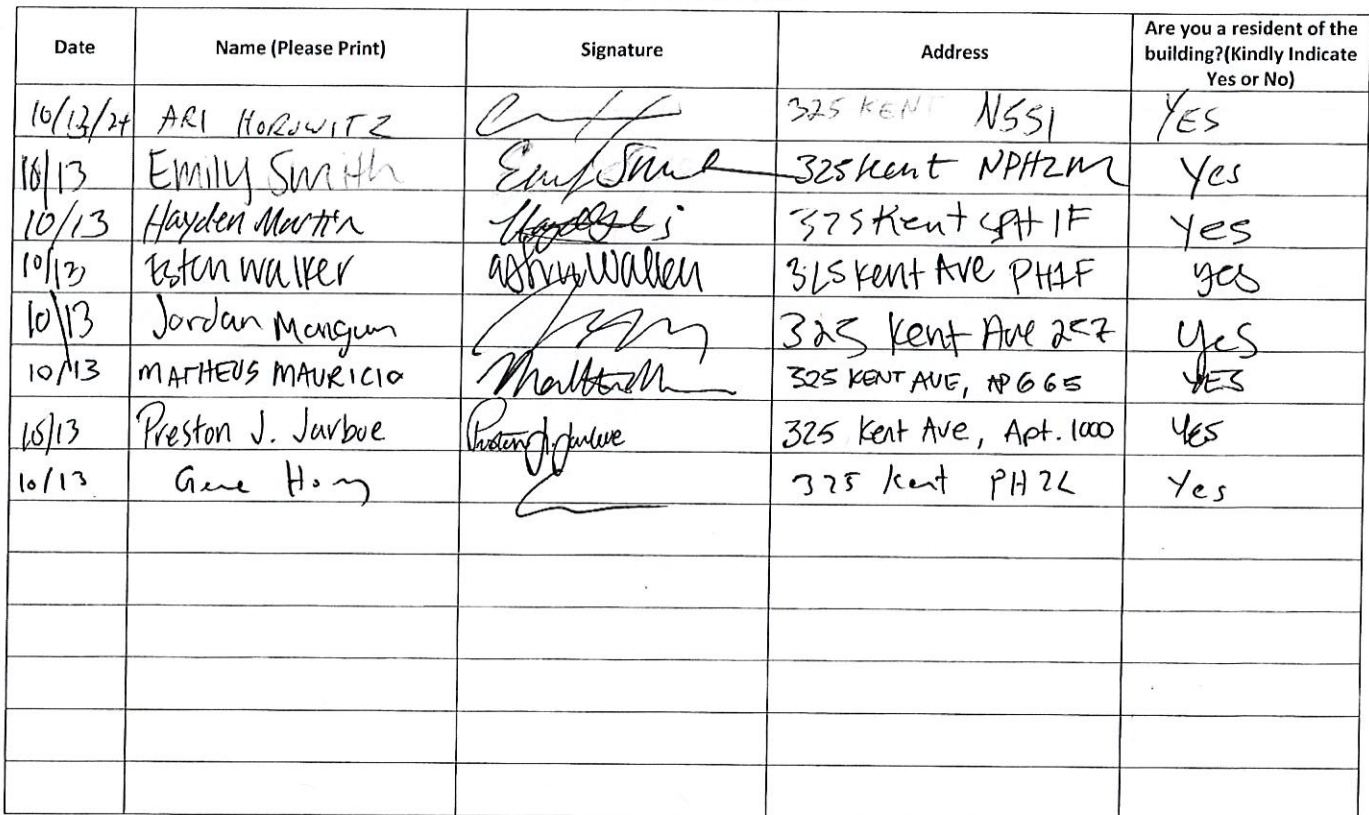 Date Name (Please Print) Signature Address Are you a resident of the building?(Kindly Indicate Yes or No)
10/13/24 ARI HOROWITZ 325 KENT N551 YES
10/13 Emily Smith Emily Smith 325 Kent NPH2M Yes
10/13 Hayden Martin 325 Kent PH 1F Yes
10/13 Walker Walker 325 Kent Ave PH1F yes
10/13 Jordan Mangum 325 Kent Ave 257 yes
10/13 MATHEUS MAURICIO 325 KENT AVE, AP 665 YES
10/13 Preston J. Jarboe Preston J. Jarboe 325 Kent Ave, Apt. 1000 YES
10/13 Gene 325 Kent PH 2L Yes